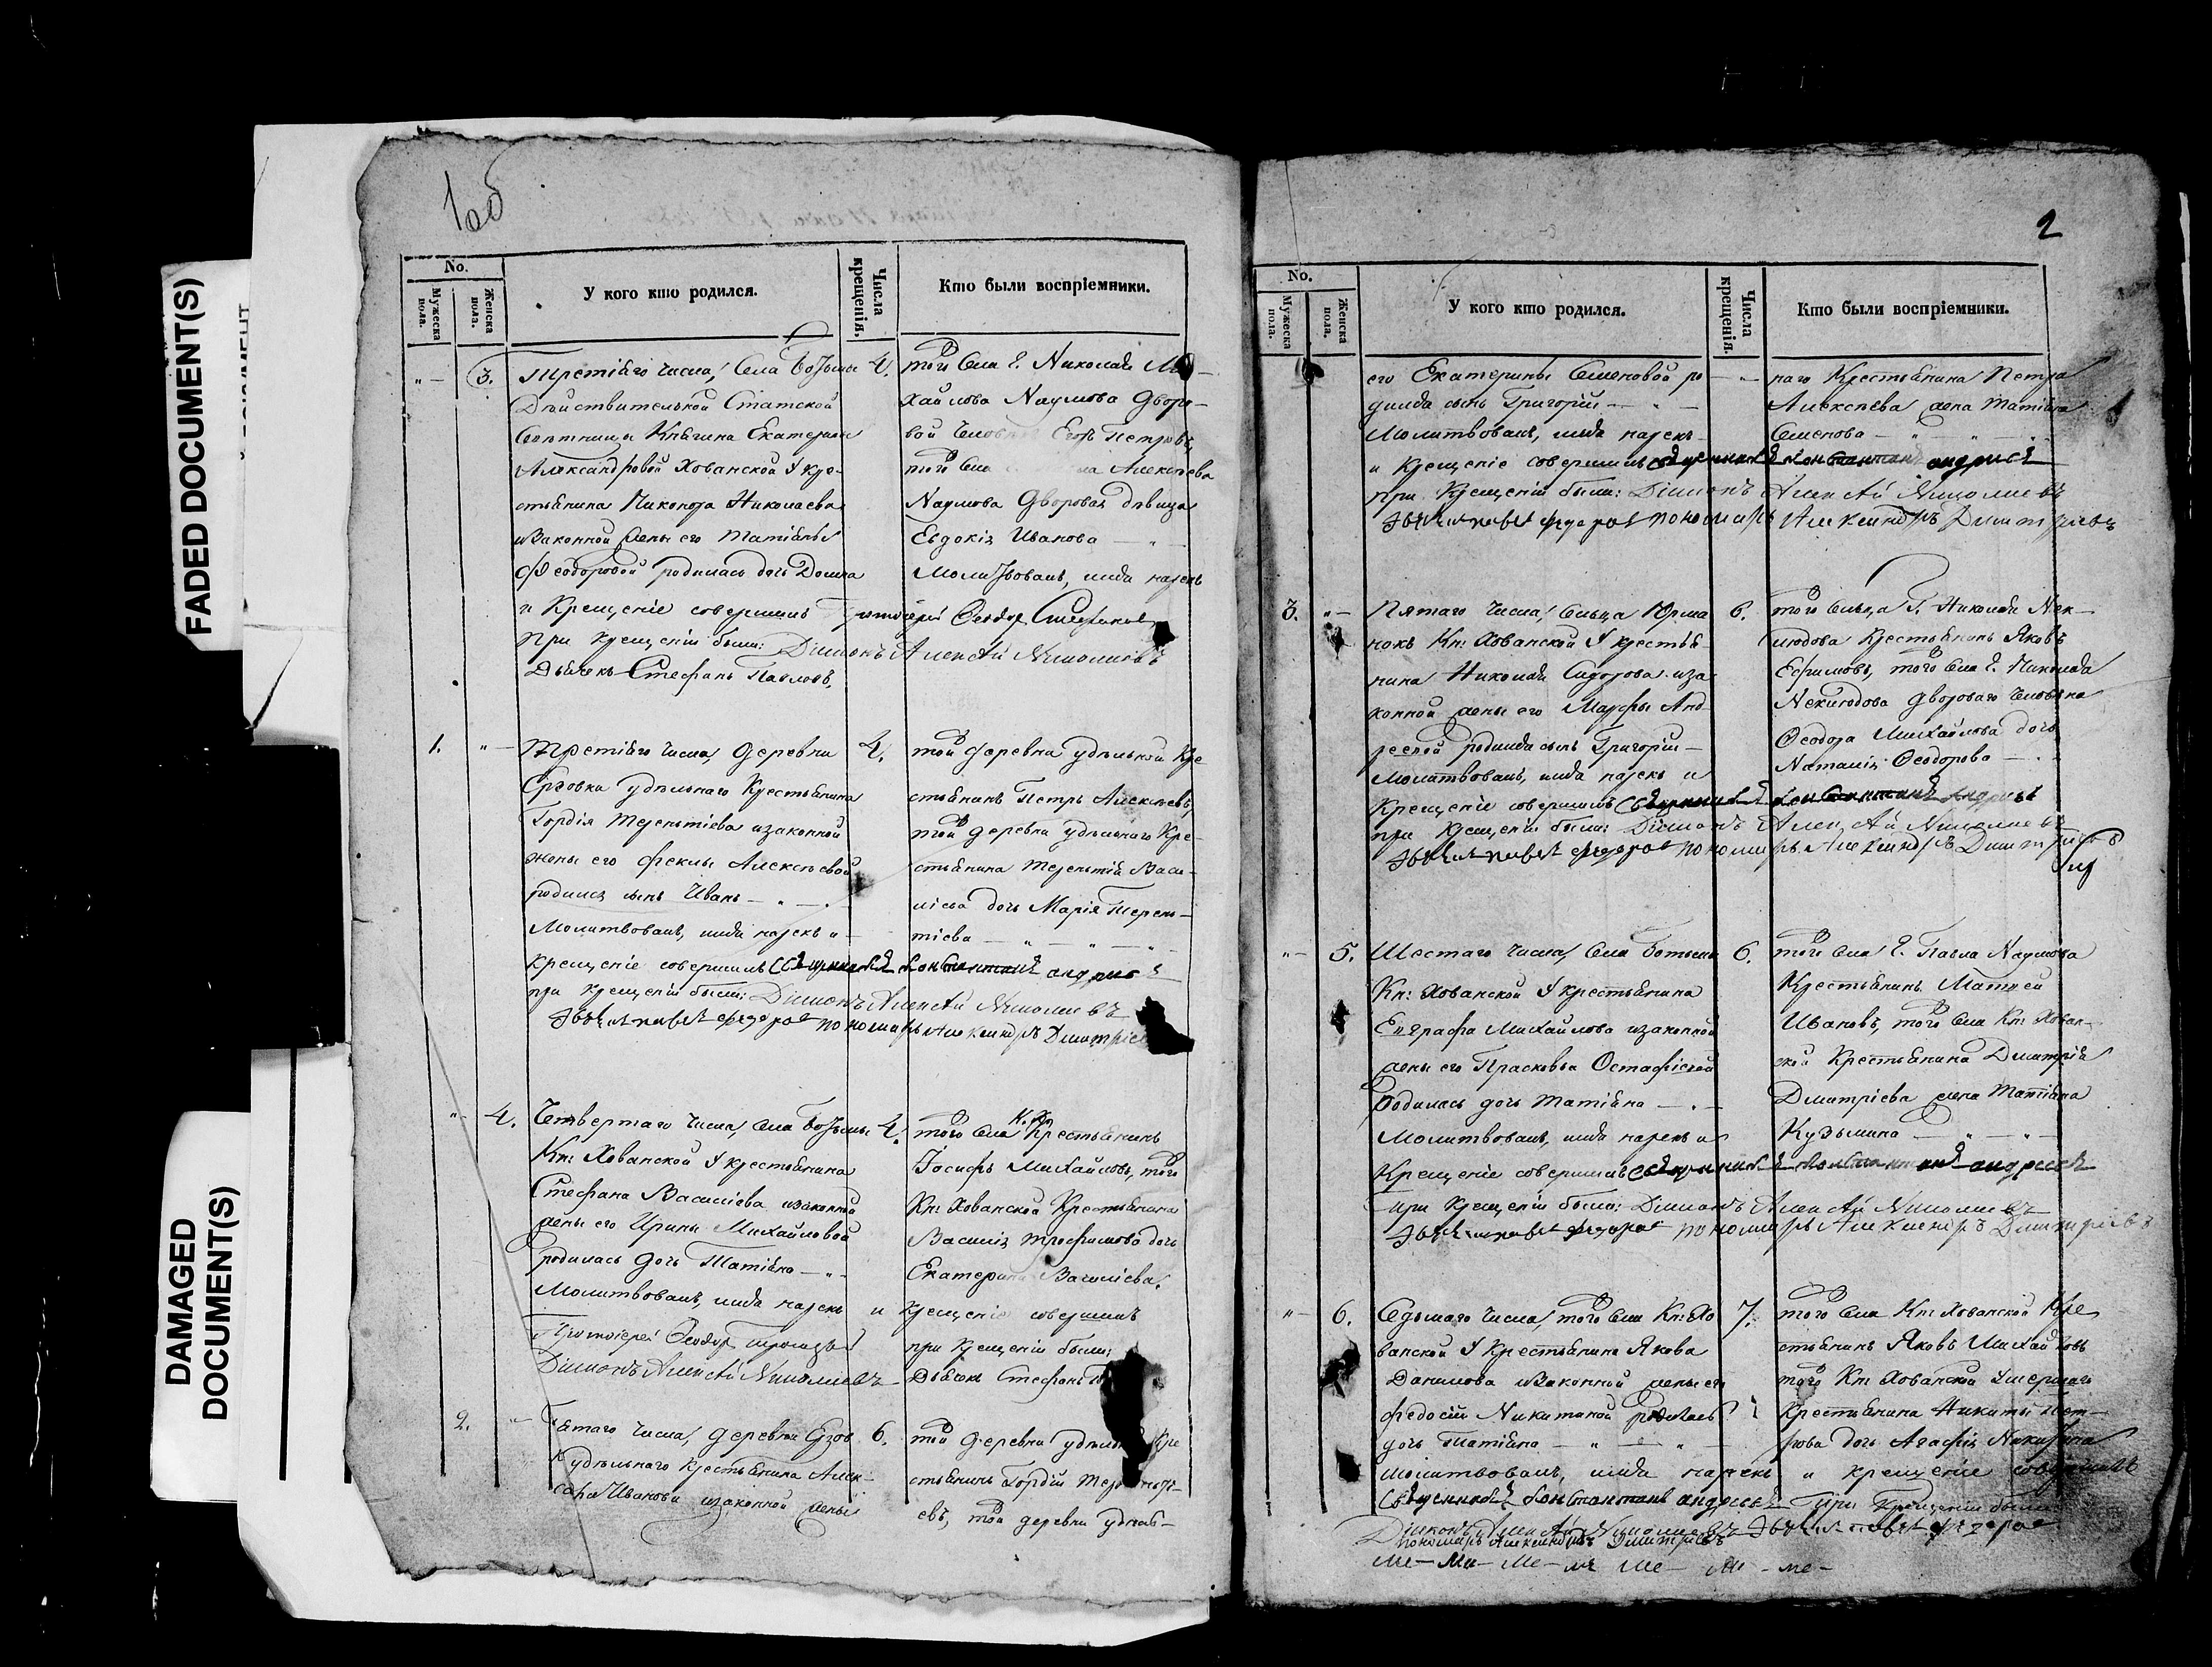 FADED DOCUMENT(S)
DAMAGED
DOCUMENT(S)
1об
No.
Мужеска пола.
Женска пола.
У кого кто родился.
Числа крещенія.
Кто были воспріемники.
"—
3.
Третіяго числа, села
4.
того села Г. Николая Ми-
Дѣйствительной Статской
хайлова Наумова дворо-
Совѣтницы Княгини Екатерины
вой Егоръ Петровъ,
Александровой Хованской у кре-
того села Алексѣева
стьянина Никонора Николаева
Наумова дворовая дѣвица
изаконной жены его Татіаны
Евдокія Иванова — "
Феодоровой родилась дочь Домна
Молитвовалъ, имя нарекъ
и Крещеніе совершилъ Протоіерей Феодор
при крещеніи были: Діаконъ Алексѣй Николаевъ
Дьячекъ Стефанъ Павловъ,
1.
"—
Третіяго числа, деревни
4.
той деревни удѣльной кре
удѣльнаго Крестьянина
стьянинъ Петръ Алексѣевъ,
Гордія Терентіева изаконной
той деревни удѣльнаго Кре-
жены его Феклы Алексѣевой
стьянина Терентій Васи-
родился сынъ Иванъ — " —
ліева дочь Марія Терен-
Молитвовалъ, имя нарекъ и
тіева — " — " — "
крещеніе совершилъ Священникъ Константинъ андреевъ
при крещеніи были: Діаконъ Алексѣй Николаевъ
федоровъ пономарь Александръ Дмитріе
"—
4.
Четвертаго числа, села
4.
того села К. Х. Крестьянинъ
Кн: Хованской у крестьянина
Іосифъ Михайловъ, того
Стефана Василіева изаконной
Кн: Хованской Крестьянина
жены его Ирины Михайловой
Василія Трофимова дочь
родилась дочь Татіана — "
Екатерина Василіева.
Молитвовалъ, имя нарекъ и крещеніе совершилъ
Протоіерей Феодор
при крещеніи были:
Діаконъ Алексѣй Николаевъ
Дьячекъ Стефанъ
2.
"—
Пятаго числа, деревни
6.
той деревни удѣльной Кре
удѣльнаго Крестьянина Алек-
стьянинъ Гордій Терентi-
Иванова изаконной жены
евъ, той деревни удѣл-
2
No.
Мужеска пола.
Женска пола.
У кого кто родился.
Числа крещенія.
Кто были воспріемники.
его Екатерины Семеновой ро
— " —
наго Крестьянина Петра
дился сынъ Григорій — " —
Алексѣева жена Татіана
Молитвовалъ, имя нарекъ
Семенова — " — " — "
и Крещеніе совершилъ Священникъ Константинъ андреевъ
при Крещеніи были: Діаконъ Алексѣй Николаевъ
федоровъ пономарь Александръ Димитріевъ
3.
"—
Пятаго числа, сельца Юрма
6.
того сельца Г. Николая Нек-
нокъ Кн: Хованской у крестья-
людова Крестьянинъ Яковъ
нина Николая Сидорова иза
Ефимовъ, того села Г. Николая
конной жены его Марфы Анд
Неклюдова двороваго человѣка
реевой родился сынъ Григорій —
Феодора Михайлова дочь
Молитвовалъ, имя нарекъ и
Наталія Феодорова — " —
Крещеніе совершилъ Священникъ Константинъ андреевъ
при Крещеніи были: Діаконъ Алексѣй Николаевъ
федоровъ пономарь Александръ Димитріевъ
"—
5.
Шестаго числа, села
6.
того села Г. Павла Наумова
Кн: Хованской у крестьянина
Крестьянинъ Матвей
Евграфа Михайлова изаконной
Ивановъ, того села Кн: Хован-
жены его Прасковьи Остафіевой
ской Крестьянина Дмитрія
родилась дочь Татіана — " —
Дмитріева жена Татіана
Молитвовалъ, имя нарекъ и
Кузьмина — " — "
Крещеніе совершилъ Священникъ Константинъ андреевъ
при Крещеніи были: Діаконъ Алексѣй Николаевъ
федоровъ пономарь Александръ Димитріевъ
"—
6.
Седьмаго числа, того села Кн: Хо
7.
того села Кн: Хованской Кре
ванской у Крестьянина Якова
стьянинъ Яковъ Михайловъ
Данилова изаконной жены его
того Кн: Хованской умершаго
Федосіи Никитиной родилась
Крестьянина Никиты Пет-
дочь Татіана — " — " —
рова дочь Агафія Никитина
Молитвовалъ, имя нарекъ и крещеніе совершилъ
Священникъ Константинъ андреевъ при Крещеніи были
Діаконъ Алексѣй Николаевъ федоров
пономарь Александръ Димитріевъ